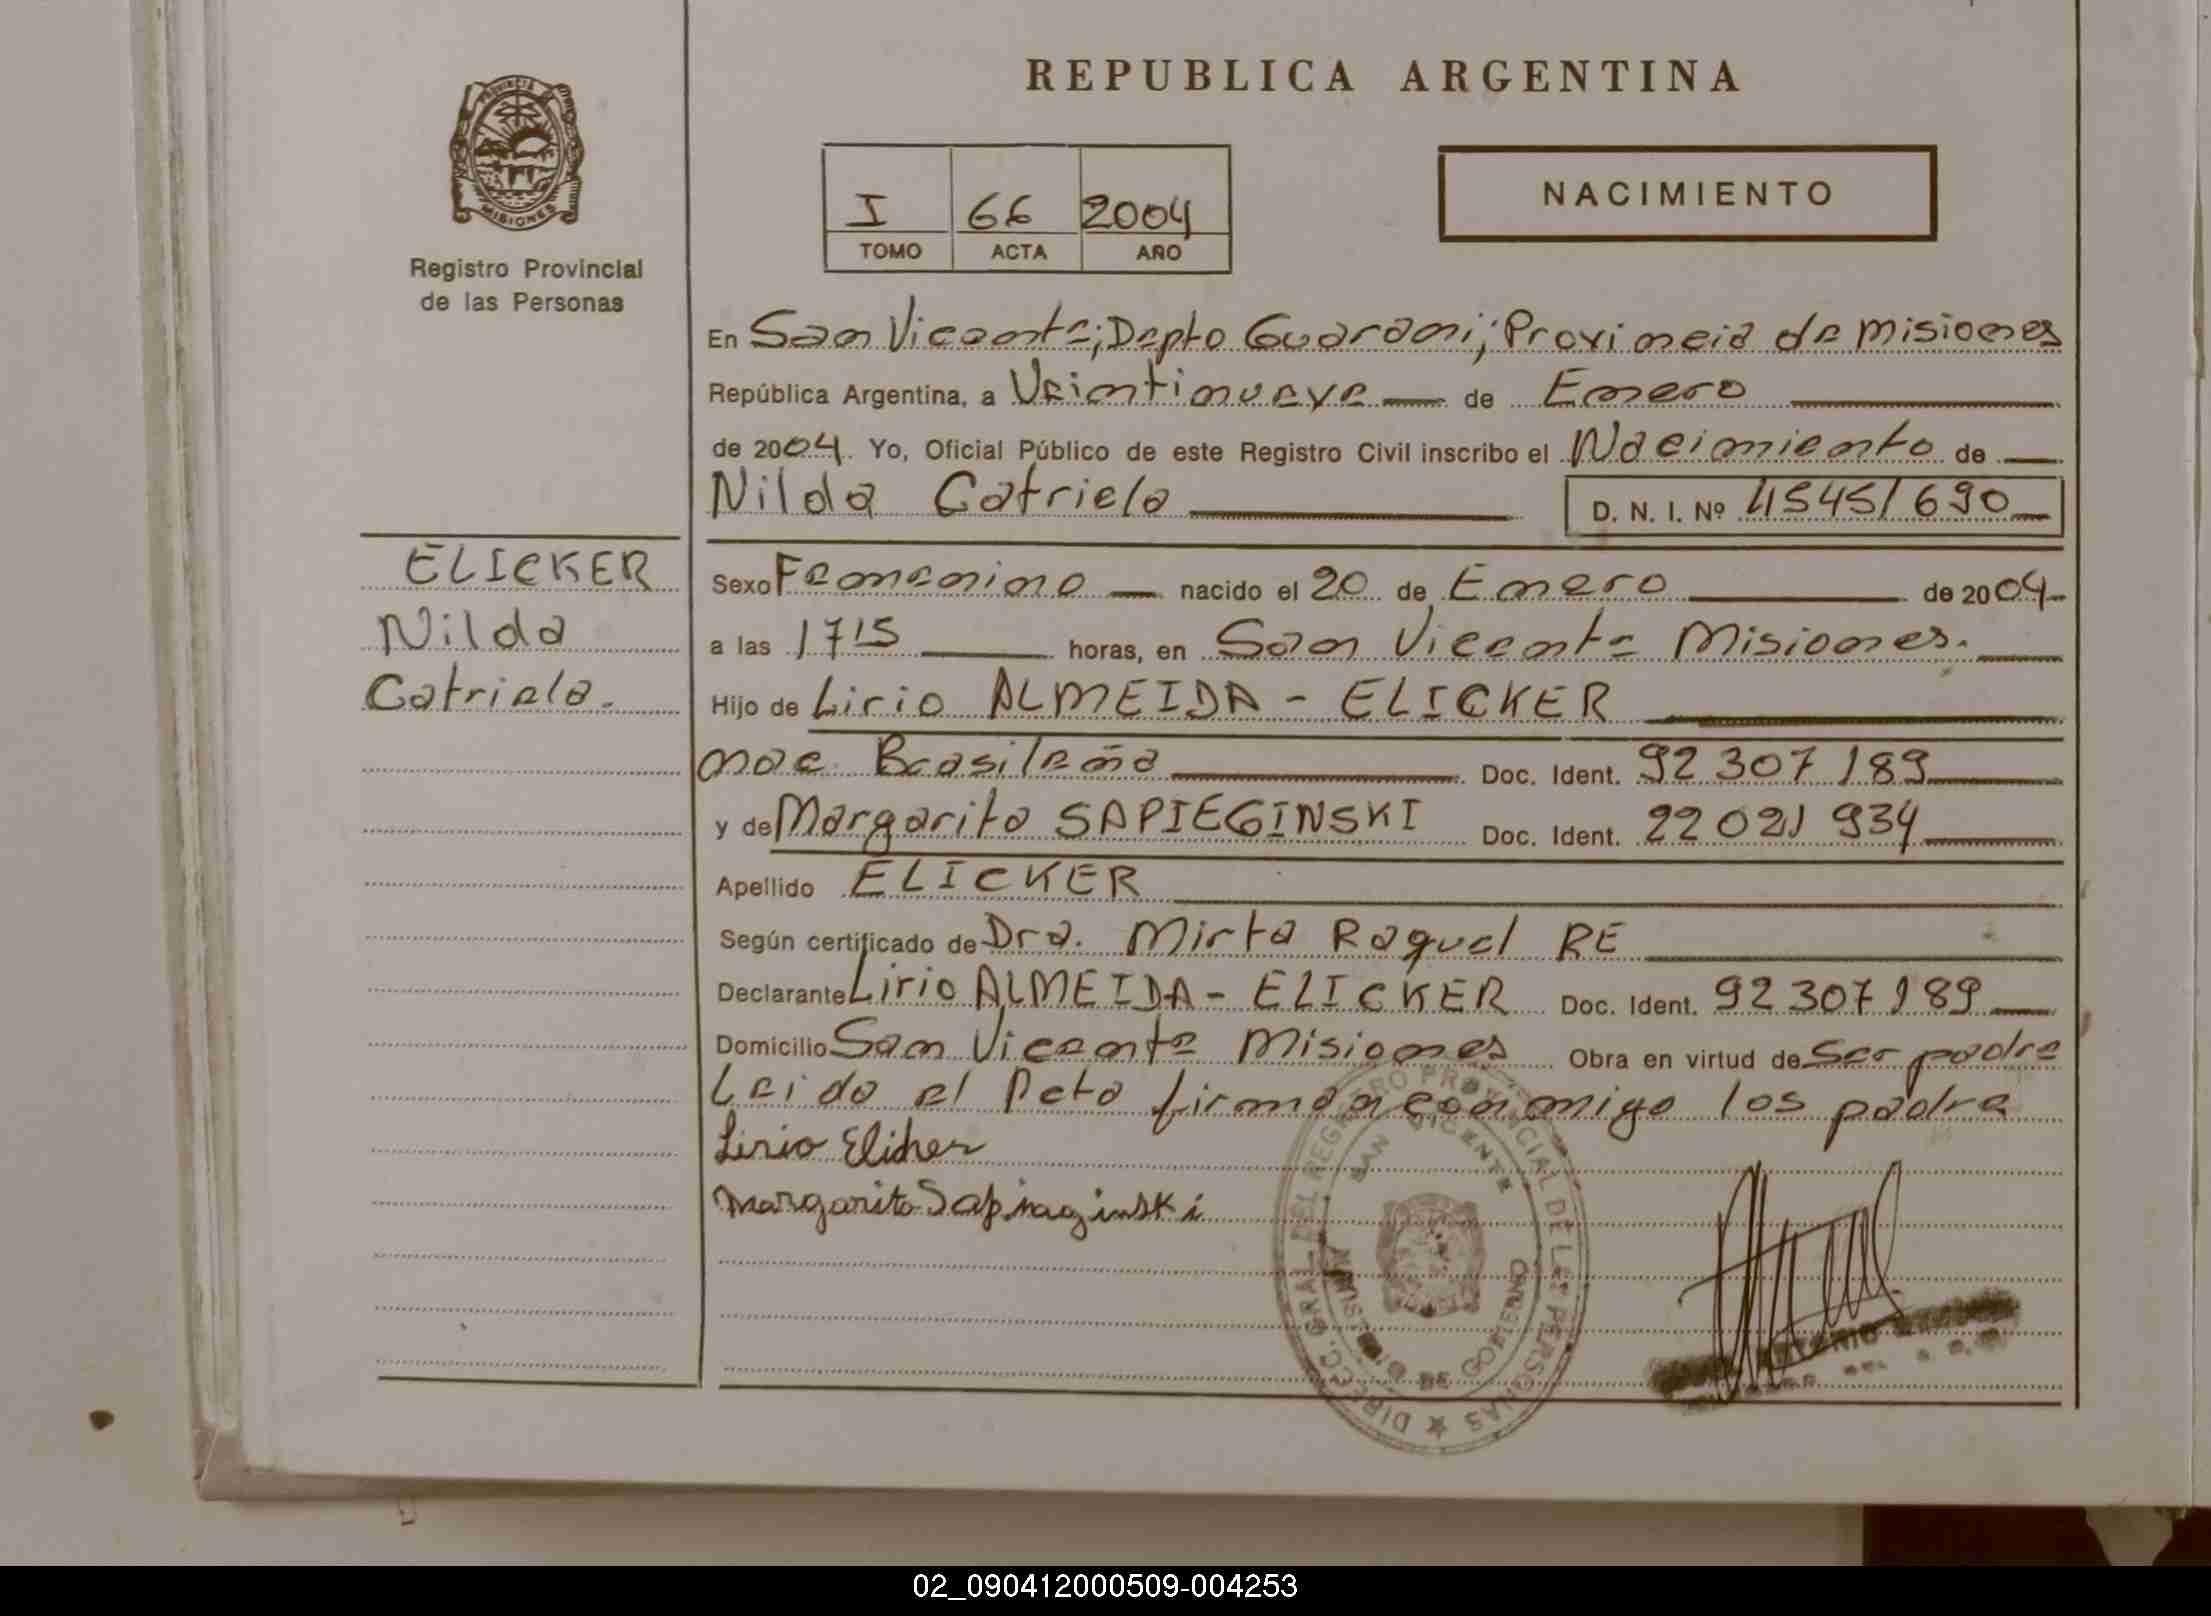 REPUBLICA ARGENTINA
PROVINCIA DE
MISIONES
Registro Provincial
de las Personas
I 66 2004
TOMO ACTA AÑO
NACIMIENTO
En San Vicente; Depto Guarani; Provincia de Misiones
República Argentina, a Veintinueve de Enero
de 2004. Yo, Oficial Público de este Registro Civil inscribo el Nacimiento de
Nilda Gatriela
D. N. I. Nº 45451690
ELICKER
Nilda
Gatriela.
Sexo Femenino nacido el 20 de Enero de 2004
a las 1715 horas, en San Vicente Misiones.
Hijo de Lirio ALMEIDA - ELICKER
nac. Brasileña Doc. Ident. 92 307 189
y de Margarita SAPIEGINSKI Doc. Ident. 22 021 934
Apellido ELICKER
Según certificado de Dra. Mirta Raquel RE
Declarante Lirio ALMEIDA - ELICKER Doc. Ident. 92 307 189
Domicilio San Vicente Misiones Obra en virtud de Ser padre
Leido el Acta firman conmigo los padre
Lirio Elicker
Margarita Sapieginski
DIRECC. GRAL. DEL REGISTRO PROVINCIAL DE LAS PERSONAS
SAN VICENTE
DE GOBIERNO
02_090412000509-004253